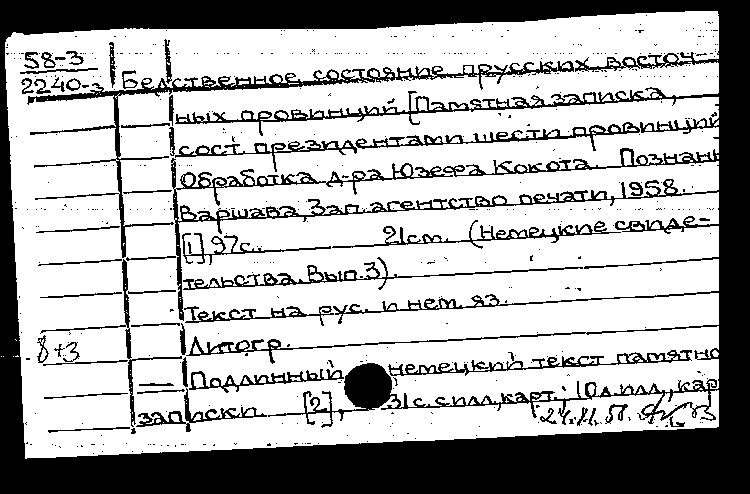 58-3
2240-3 Бедственное состояние прусских восточ-
ных провинций [Памятная записка,
сост. президентами шести провинций
Обработка д-ра Юзефа Кокота. Познань
Варшава, Зап. агентство печати, 1958.
[1], 97с. 21см. (Немецкие свиде-
тельства. Вып.3).
Текст на рус. и нем. яз.
8+3 Литогр.
— Подлинный немецкий текст памятно
записки [2], 31с. с илл., карт.; 10л. илл., кар
24.XI.58.